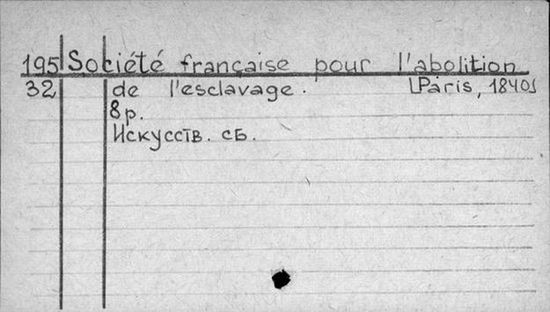 195 Société française pour l'abolition
32 de l'esclavage. [Paris, 1840]
8p.
Искусств. сб.